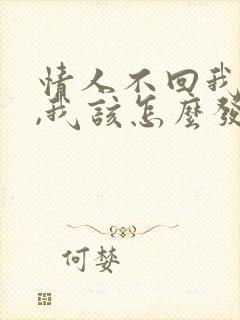 情人不回我
,我該怎麼發
何婪